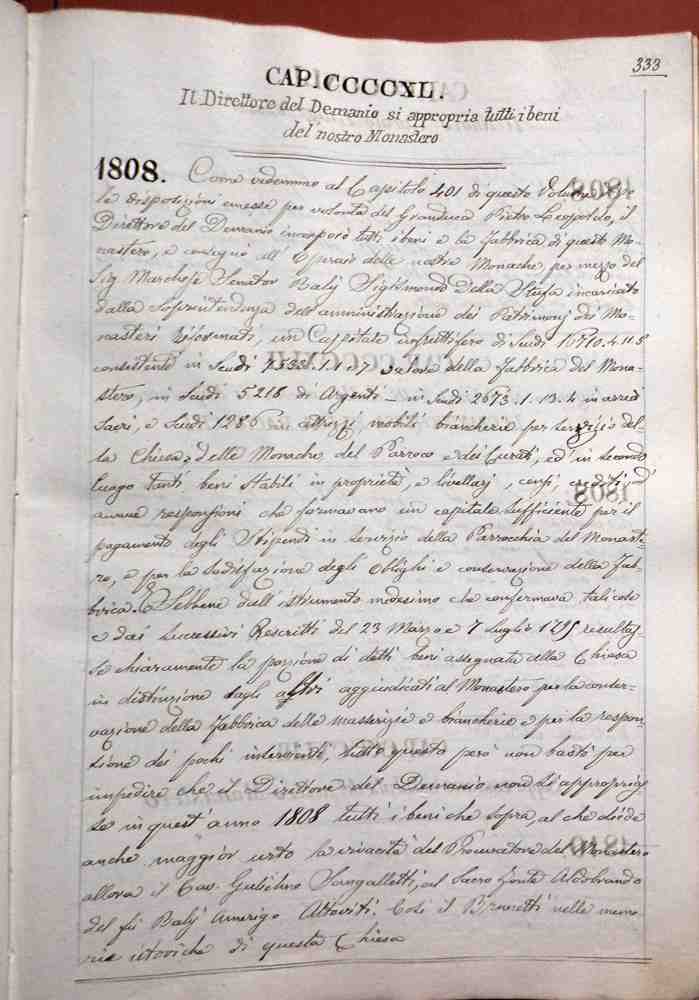 333
CAP. CCCCXL.
Il Direttore del Demanio si appropria tutti i beni
del nostro Monastero
1808. Come vedemmo al Capitolo 401 di questo Volume
le disposizioni emesse per volontà del Granduca Pietro Leopoldo, il
Direttore del Demanio incorporò tutti i beni e la Fabbrica di questo Mo-
nastero, e consegnò all' Operaio delle nostre Monache per mezzo del
Sig. Marchese Senator Balì Sigismondo Della Stufa incaricato
dalla Soprintendenza dell'amministrazione dei Patrimonj dei Mo-
nasteri Riformati, un Capitale infruttifero di Scudi 16710.4.11.5
consistente in Scudi 7533.1.1 valore della Fabbrica del Mona-
stero, in Scudi 5218 di Argenti - in Scudi 2673.1.13.4 in arredi
Sacri, e Scudi 1286 in attrezzi mobili biancherie per servizio del-
la Chiesa, delle Monache del Parroco e dei Curati, ed in secondo
luogo tanti beni stabili in proprietà, e livellarj, censi, crediti, ed
annue responsioni che formavano un capitale sufficiente per il
pagamento degli Stipendi in servizio della Parrocchia del Monaste-
ro, e per la sodisfazione degli Oblighi e conservazione della Fab-
brica. E sebbene dall' istrumento medesimo che confermava tali cose
e dai successivi Rescritti del 23 Marzo e 7 Luglio 1795 resultas-
se chiaramente la porzione di detti beni assegnata alla Chiesa
in distinzione dagli altri aggiudicati al Monastero per la conser-
vazione della Fabbrica delle masserizie e biancherie e per la respon-
sione dei pochi inservienti, tutto questo però non bastò per
impedire che il Direttore del Demanio non si approprias-
se in quest' anno 1808 tutti i beni che sopra, al che diede
anche maggior urto la vivacità del Procuratore del Monastero
allora il Cav. Gulielmo Sangalletti, al Sacro Fonte Aldobrando
del fu Balì Amerigo Altoviti. Così il Brunetti nelle memo
rie istoriche di questa Chiesa